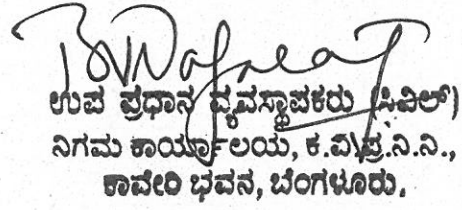 ಉಪ ಪ್ರಧಾನ ವ್ಯವಸ್ಥಾಪಕರು (ಸಿವಿಲ್)
ನಿಗಮ ಕಾರ್ಯಾಲಯ, ಕ.ವಿ.ಪ್ರ.ನಿ.ನಿ.,
ಕಾವೇರಿ ಭವನ, ಬೆಂಗಳೂರು.